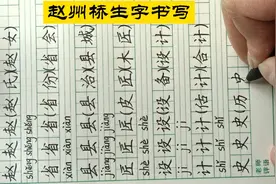 赵州桥生字书写
赵赵赵(赵氏)(赵女)
shěng shěng
省省省(省份)(省会)
xiàn xiàn xiàn
县县县(县治)(县城)
jiàng jiàng jiàng
匠匠匠(皮匠)(木匠)
shè shè
设设设(设备)(设计)
jì jì jì
计计计(估计)(合计)
shǐ shǐ
史史史(历史